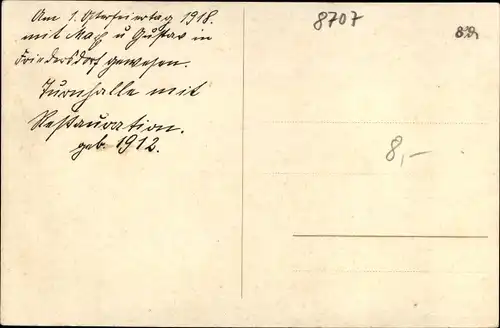 Am 1. Osterfeiertag 1918.
mit Max u Gustav in
Friedersdorf gewesen.
Turnhalle mit
Restauration.
geb. 1912.
8707
8,-